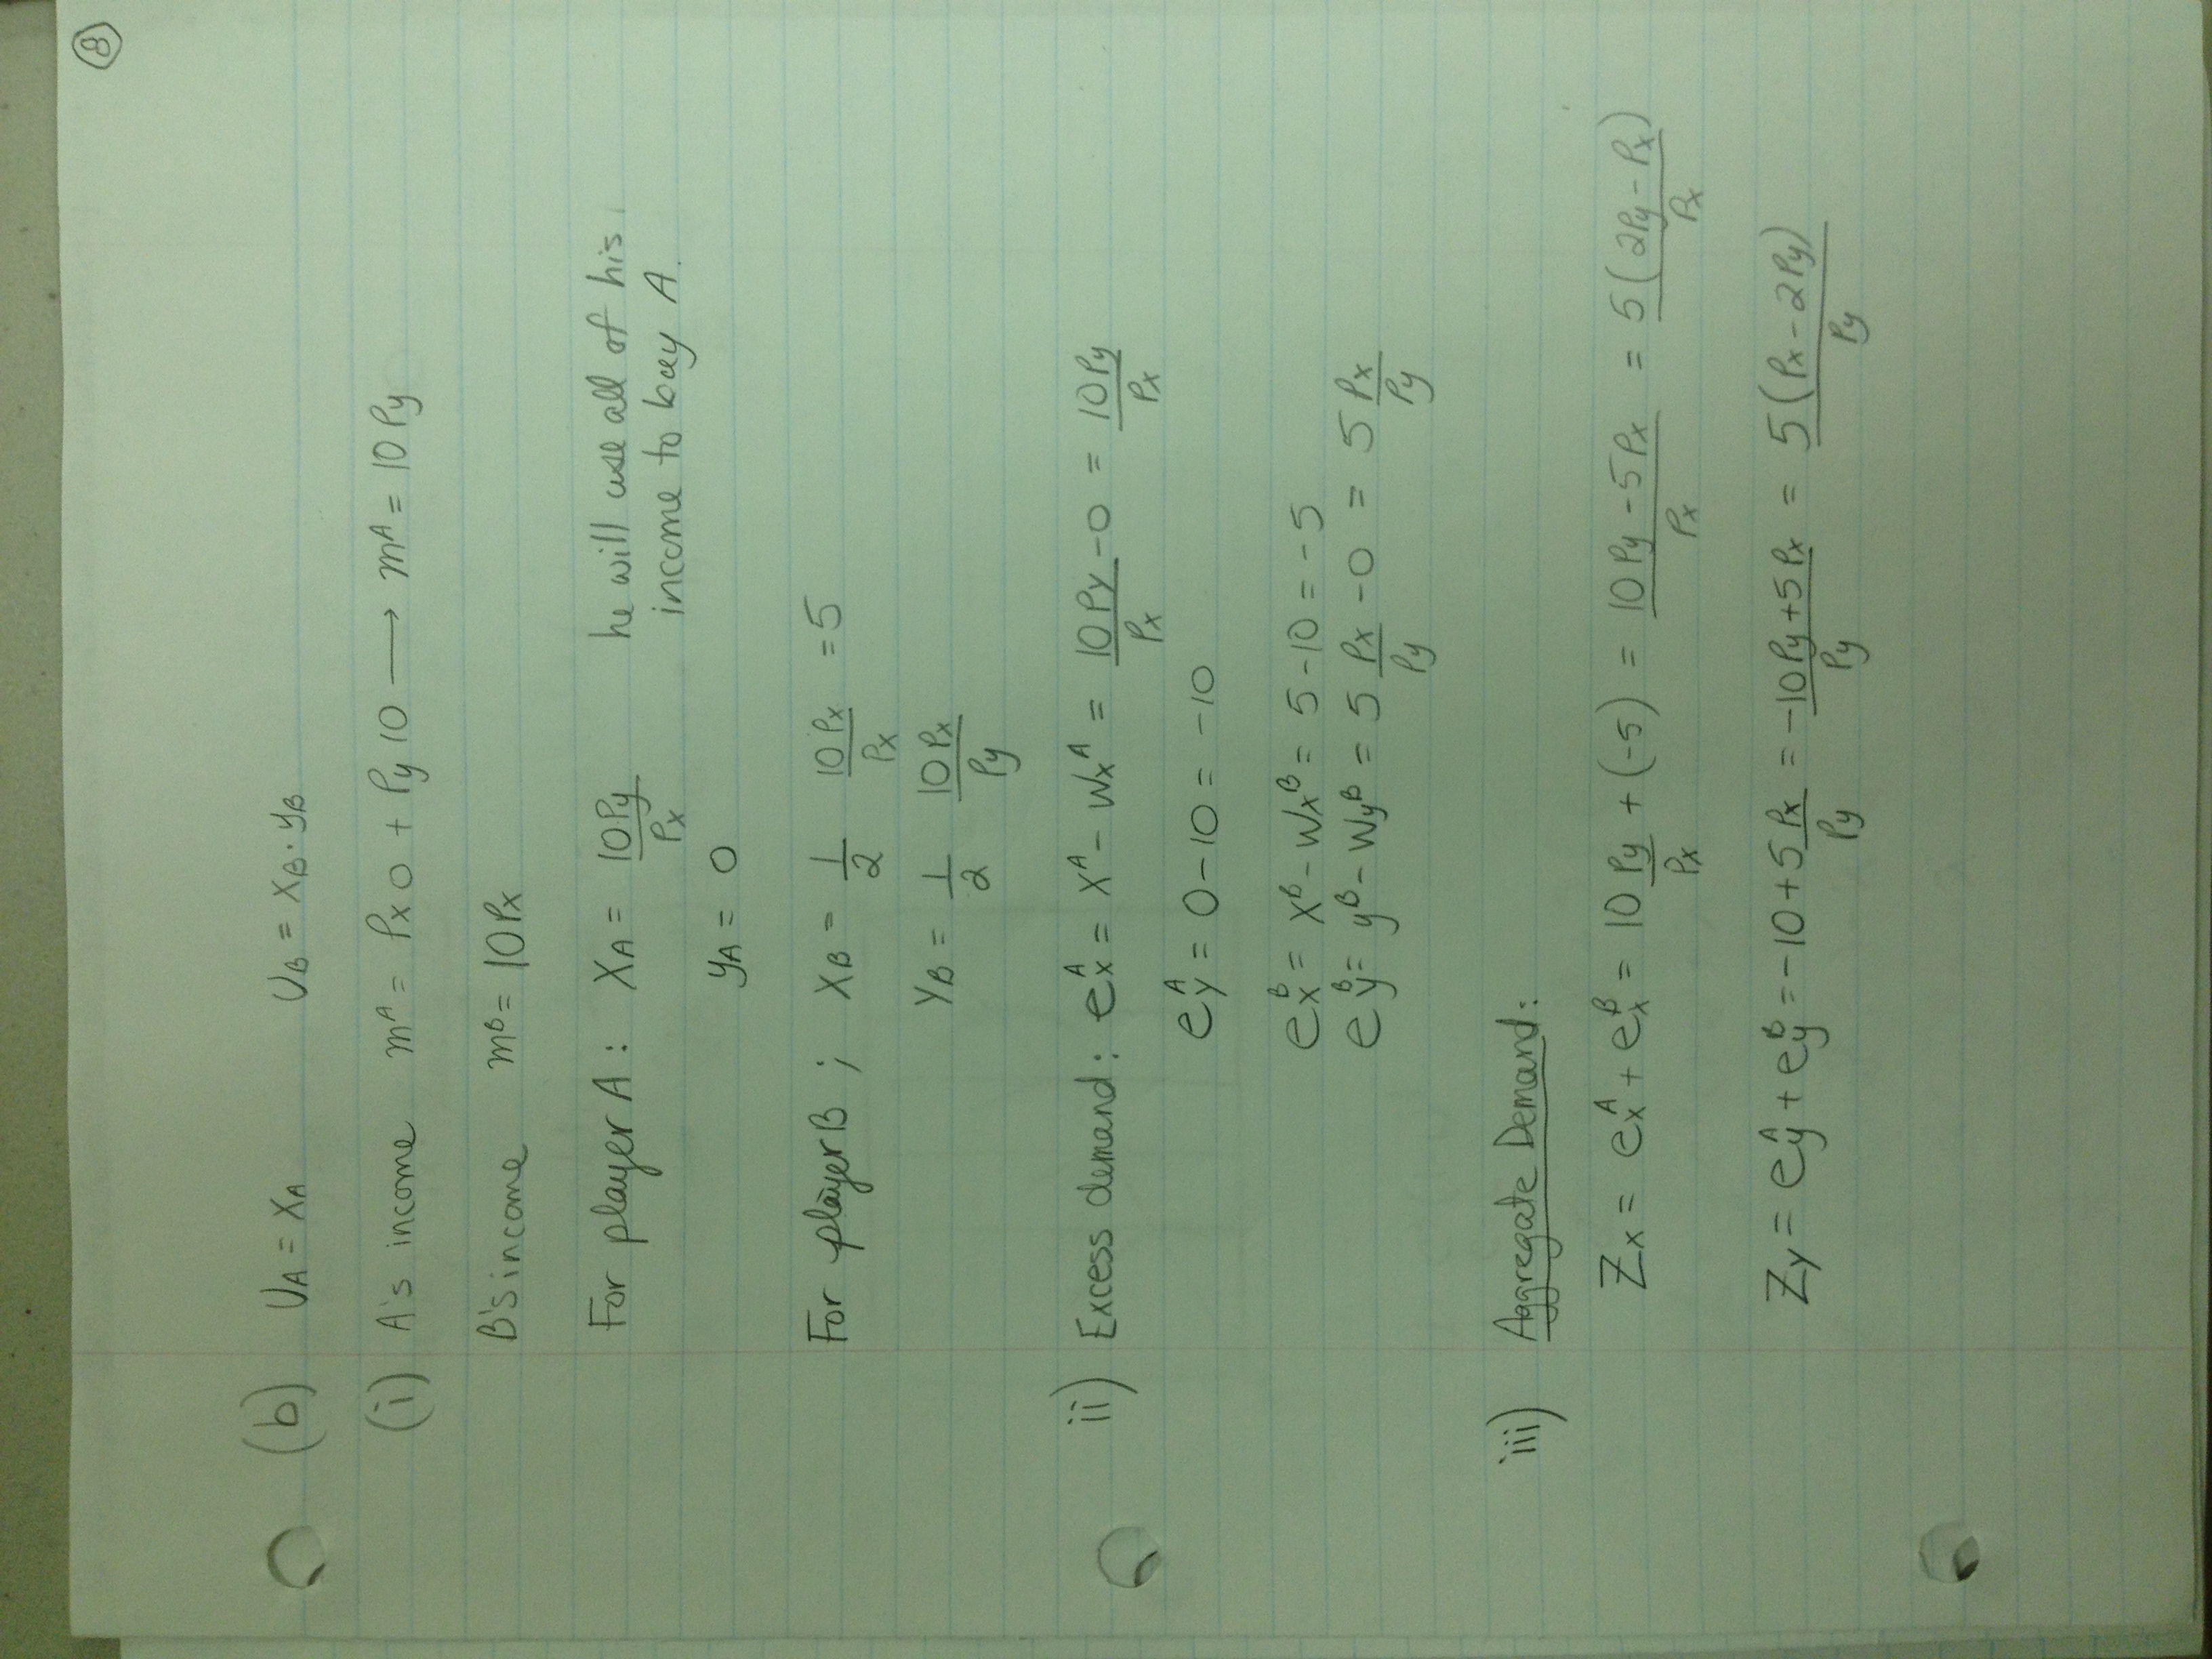 8
(b) U_A = X_A U_B = X_B · y_B
(i) A's income m^A = P_x 0 + P_y 10 ⟶ m^A = 10 P_y
B's income m^B = 10 P_x
For player A : X_A = 10 P_y / P_x he will use all of his
income to buy A.
y_A = 0
For player B ; X_B = 1/2 10 P_x / P_x = 5
Y_B = 1/2 10 P_x / P_y
ii) Excess demand : e_x^A = X^A - W_x^A = 10 P_y / P_x - 0 = 10 P_y / P_x
e_y^A = 0 - 10 = -10
e_x^B = X^B - W_x^B = 5 - 10 = -5
e_y^B = y^B - W_y^B = 5 P_x / P_y - 0 = 5 P_x / P_y
iii) Aggregate Demand :
Z_x = e_x^A + e_x^B = 10 P_y / P_x + (-5) = 10 P_y - 5 P_x / P_x = 5 (2P_y - P_x) / P_x
Z_y = e_y^A + e_y^B = -10 + 5 P_x / P_y = -10 P_y + 5 P_x / P_y = 5 (P_x - 2P_y) / P_y